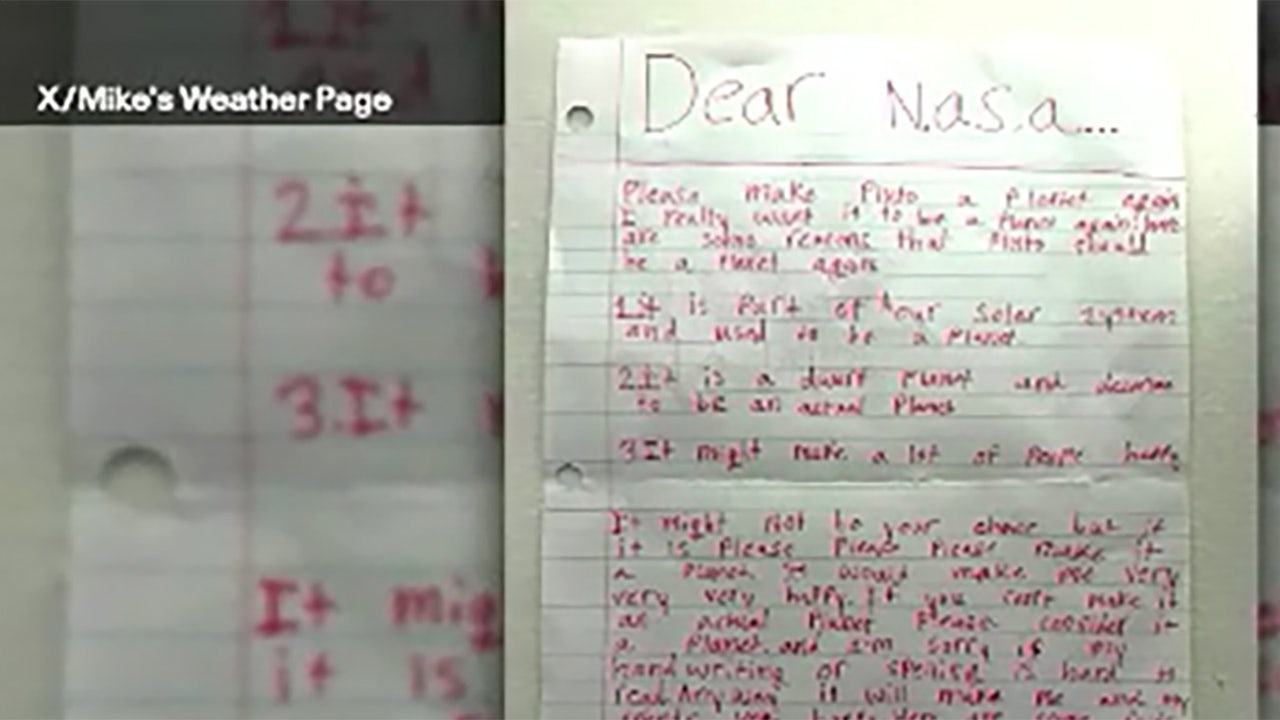 X/Mike's Weather Page
2 It
to
3. It
It mig
it is
Dear N.a.s.a...
Please make Pluto a Planet again
I really want it to be a Planet again
are some reasons that Pluto should
be a Planet again
1 It is Part of our solar system
and used to be a Planet
2 It is a dwarf Planet and
to be an actual Planet
3 It might make a lot of People happy
It might not be your choice but if
it is Please Please Please make it
a Planet It would make me very
very very happy. If you can't make it
an actual Planet Please consider it
a Planet. and I'm sorry if my
handwriting or spelling is hard to
read Anyway it will make me and my